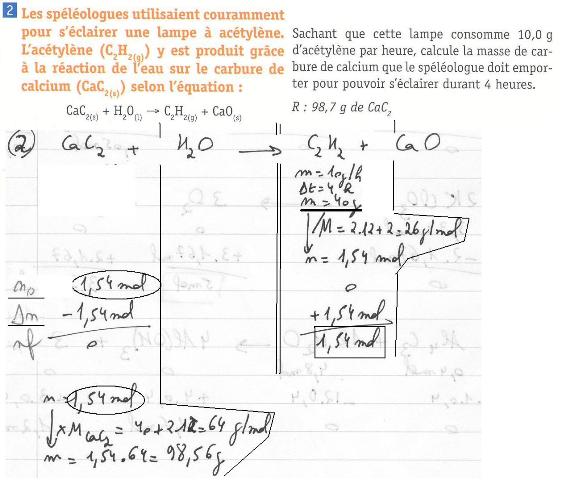 2 Les spéléologues utilisaient couramment
pour s'éclairer une lampe à acétylène.
L'acétylène (C₂H₂(g)) y est produit grâce
à la réaction de l'eau sur le carbure de
calcium (CaC₂(s)) selon l'équation :
CaC₂(s) + H₂O(l) → C₂H₂(g) + CaO(s)
Sachant que cette lampe consomme 10,0 g
d'acétylène par heure, calcule la masse de car-
bure de calcium que le spéléologue doit empor-
ter pour pouvoir s'éclairer durant 4 heures.
R : 98,7 g de CaC₂
(2) CaC₂ + H₂O → C₂H₂ + CaO
m = 10g/h
Δt = 4 h
m = 40g
/M = 2.12+2=26g/mol
n = 1,54 mol
n₀ 1,54 mol 0
Δn -1,54 mol +1,54 mol
nf 0 1,54 mol
n = 1,54 mol
× M CaC₂ = 40+2.12=64 g/mol
m = 1,54.64= 98,56g